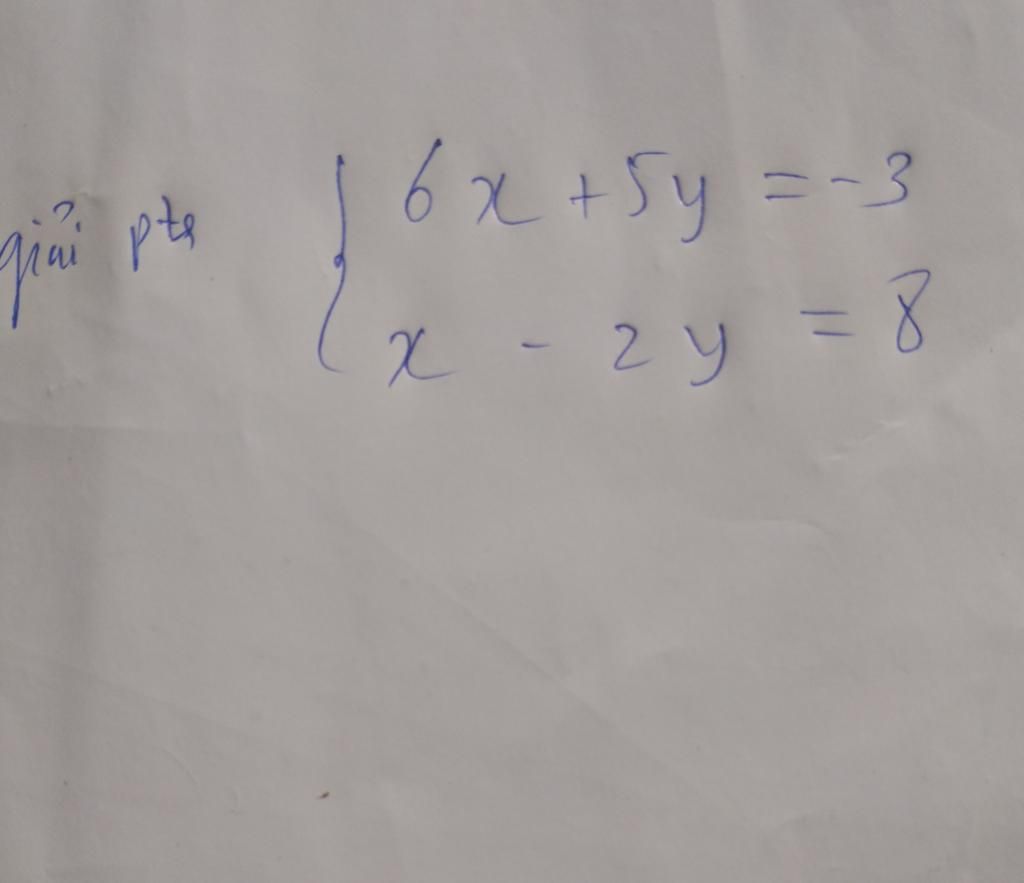 giải ptr
6x + 5y = -3
x - 2y = 8